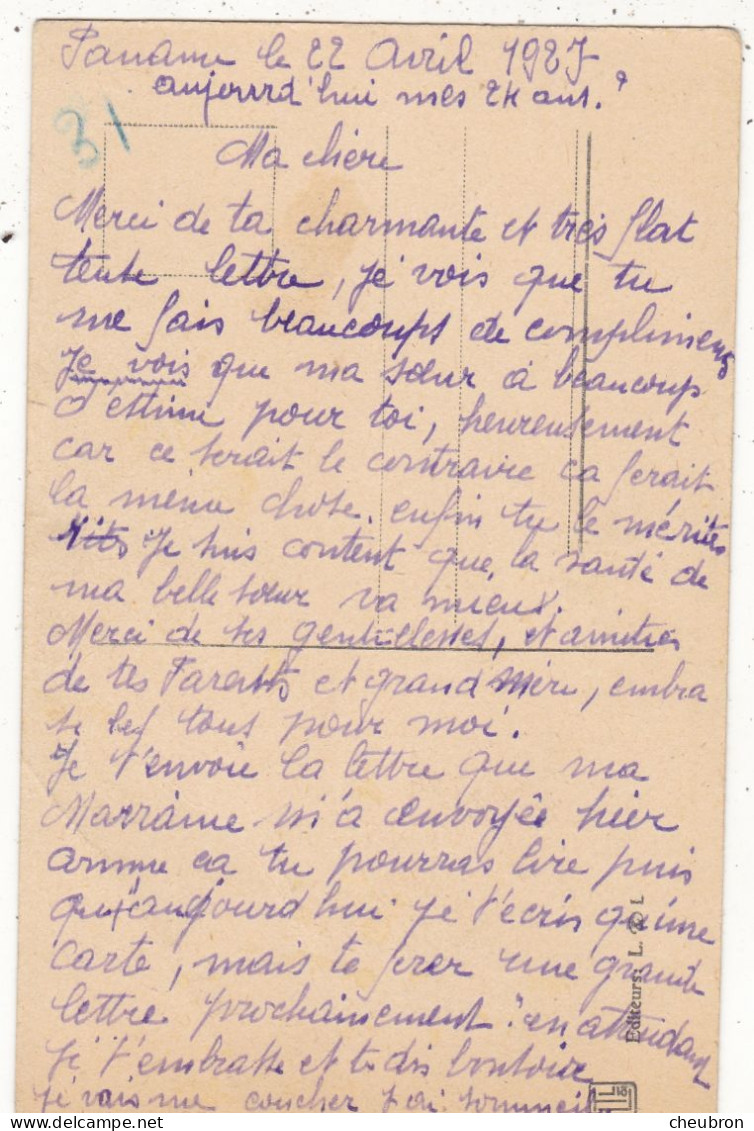 Paname le 22 Avril 1927
aujourrd'hui mes 24 ans.
31
Ma chère
Merci de ta charmante et très flat
tente lettre, je vois que tu
me fais beaucoups de complimens
Je vois que ma sœur à beaucoup
d'estime pour toi, heureusement
car ce serait le contraire ca ferait
la même chose. enfin tu le mérites
Je suis content que la santé de
ma belle sœur va mieux.
Merci de tes gentillesses, et amitiés
de tes Parents et grand Mère, embra
se les tous pour moi.
Je t'envoie la lettre que ma
Marraine m'a envoyée hier
comme ca tu pourras lire puis
qu'aujourd hui je t'ecris qu'une
carte, mais te ferer une grande
lettre prochainement. en attendant
Je t'embrasse et te dis bonsoir
Je vais me coucher J'ai sommeil
Editeurs: L. & L
cheubron
CHEUBRON